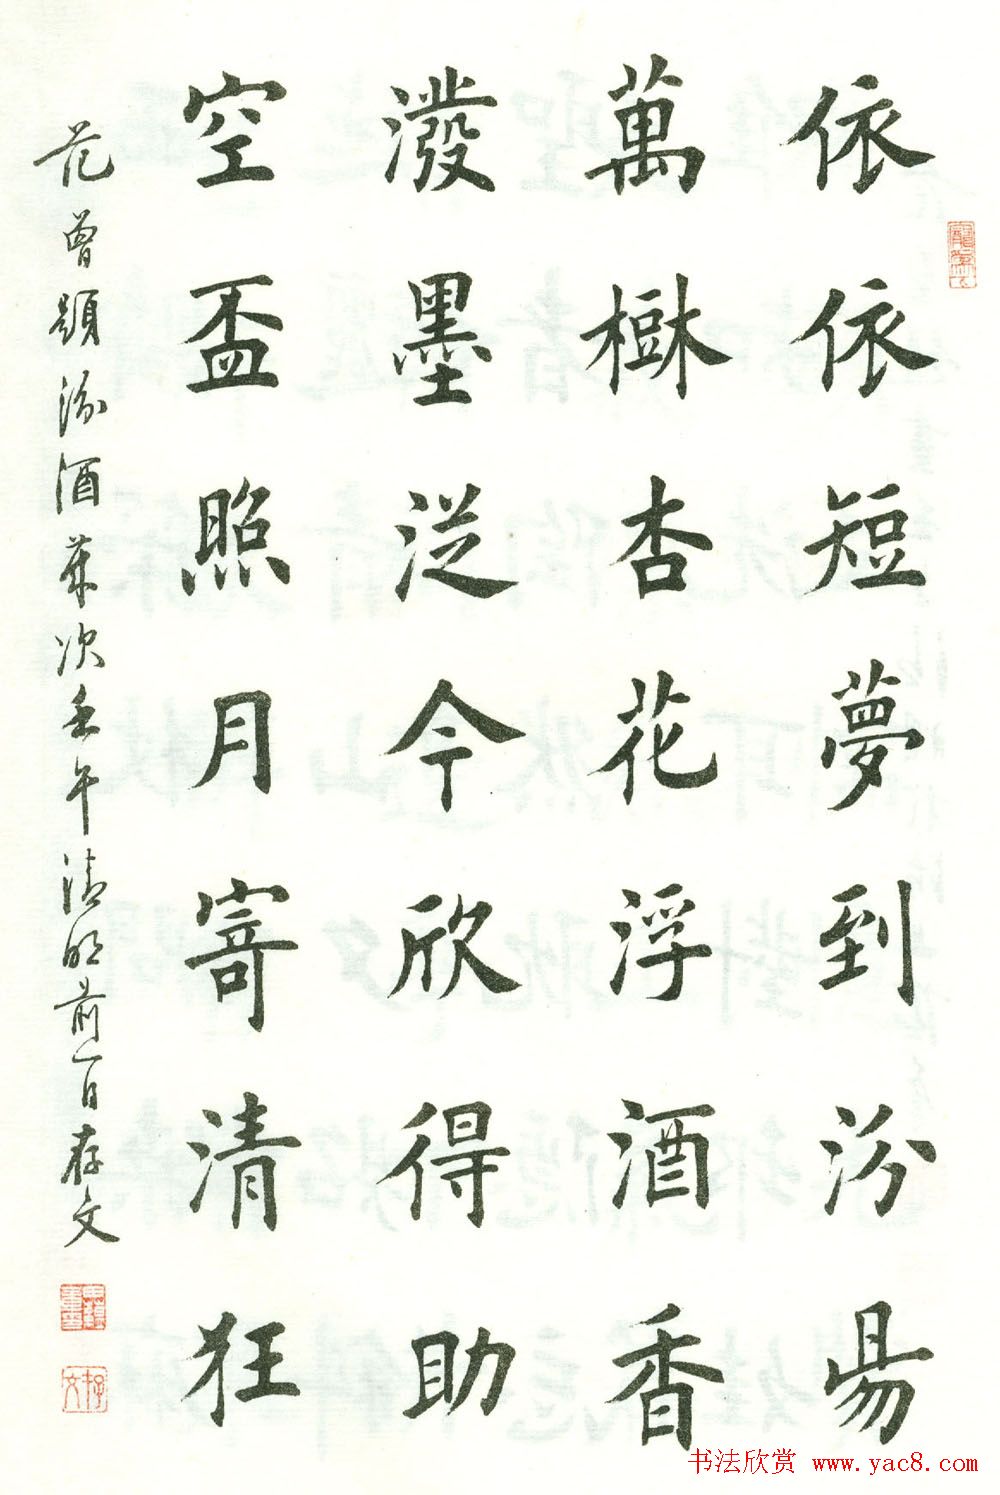 依依短夢到汾昜
萬樹杏花浮酒香
潑墨從今欣得助
空盃照月寄清狂
范曾題汾酒歲次壬午清明前一日存文
书法欣赏 www.yac8.com